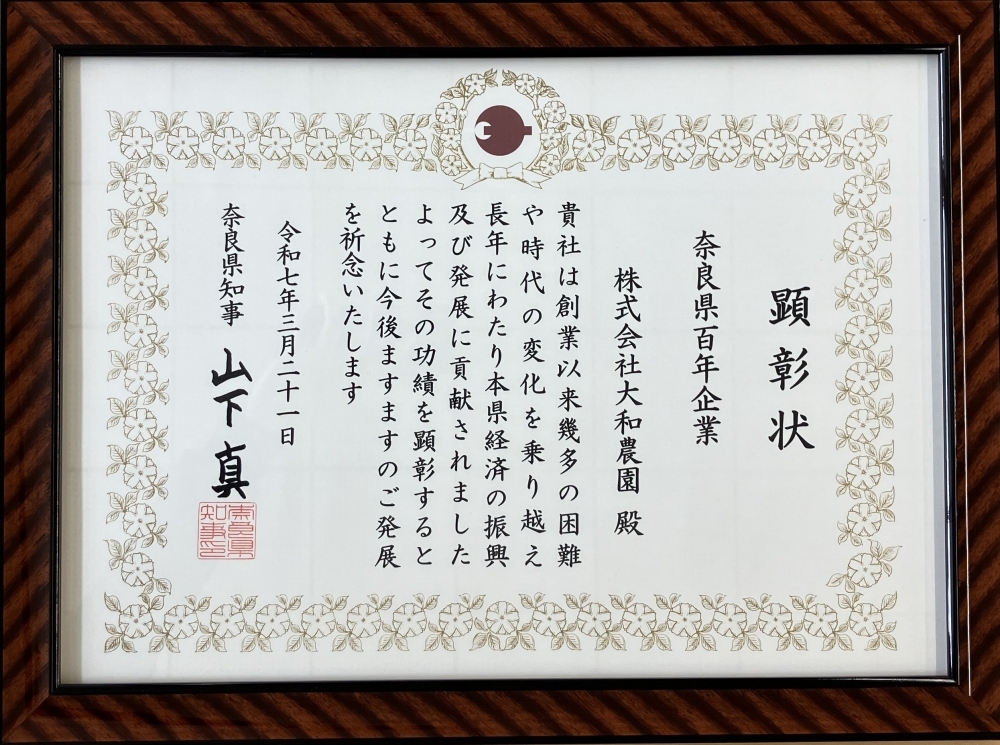 顕彰状
奈良県百年企業
株式会社大和農園 殿
貴社は創業以来幾多の困難
や時代の変化を乗り越え
長年にわたり本県経済の振興
及び発展に貢献されました
よってその功績を顕彰すると
ともに今後ますますのご発展
を祈念いたします
令和七年三月二十一日
奈良県知事 山下真
奈良県
知事印